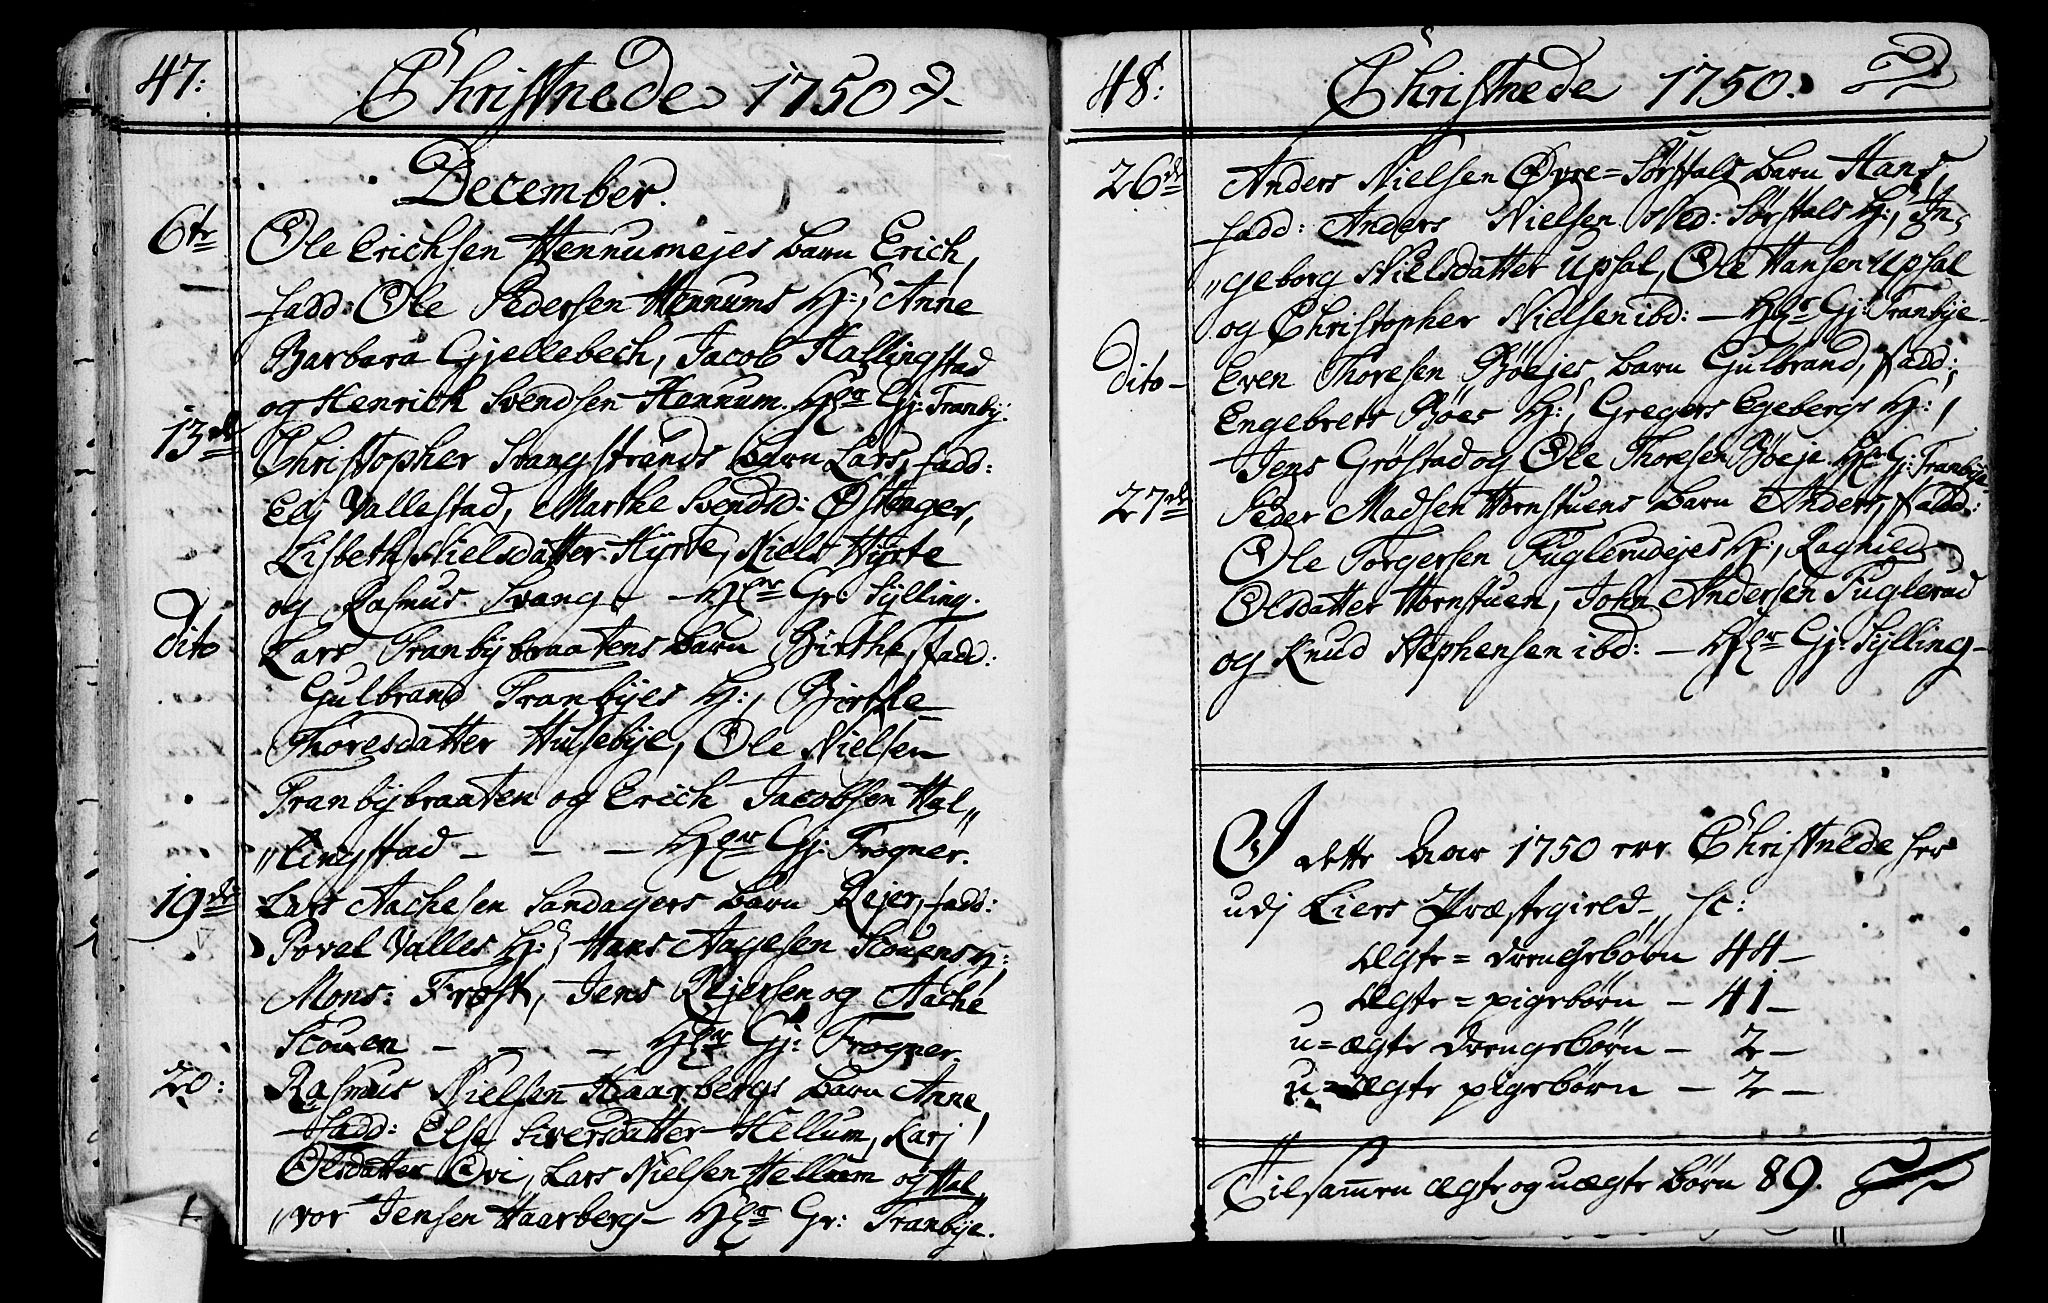 47:
Christnede 1750
December.
6te Ole Erichsen Hennumejes barn Erich,
fadd: Ole Pedersen Hennums H:, Anne
Barbara Gjellebech, Jacob Hallingstad
og Henrich Svendsen Hennum. Gj: Tranby:
13de Christopher Svangstrands barn Lars, fadd:
Elj Vallestad, Marthe Svendsd: Østenger,
Lisbeth Nielsdatter Hyrte, Niels Hyrte
og Rasmus Svang - Gr: Sylling.
Dito Lars Tranbybraatens barn Birthe, fadd:
Gulbrand Tranbyes H:, Birthe
Thoresdatter Husebye, Ole Nielsen
Tranbybraaten og Erich Jacobsen Hal„
„lingstad - - - Gj: Frogner.
19de Lars Aachesen Sandagers barn Rejer, fadd:
Povel Valles H:, Hans Aagesen Scouens H:,
Mons: Frost, Jens Rejersen og Aache
Scouen - - - Gj: Frogner.
20: Rasmus Nielsen Haarbergs barn Anne,
fadd: Else Siversdatter Hellum, Karj
Olsdatter Ovi, Lars Nielsen Hellum og Hal„
„vor Jensen Haarberg - Gr: Tranbye.
48:
Christnede 1750.
26de Anders Nielsen Øvre=Sørstals barn Hans,
fadd: Anders Nielsen Ned: Sørstals H:, In„
„geborg Nielsdatter Upsal, Ole Hansen Upsal
og Christopher Nielsen ibd: - Gj: Tranbye-
Dito - Even Thoresen Bøejes barn Gulbrand, fadd:
Engebrets Bøes H:, Gregers Egebergs H:,
Jens Grøstad og Ole Thoresen Bøeje Gj: Tranbye-
27de Peder Madsen Hornstuens barn Anders, fadd:
Ole Torgersen Fuglerudejes H:, Ragnild
Olsdatter Hornstuen, John Andersen Fuglerud
og Knud Stephensen ibd: - Gj: Sylling-
I dette Aar 1750 ere Christnede her
udj Liers Præstegield - sc:
Ægte=drengebørn 44-
Ægte=pigebørn - 41-
u=ægte drengebørn - 2-
u=Ægte pigebørn - 2-
Tilsammen ægte og uægte børn 89.